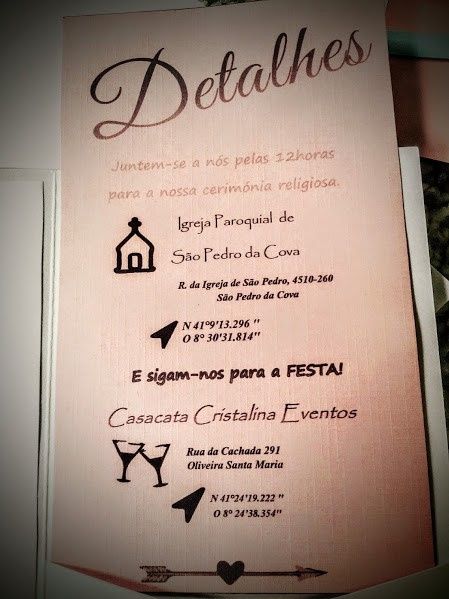 Detalhes
Juntem-se a nós pelas 12horas
para a nossa cerimónia religiosa.
Igreja Paroquial de
São Pedro da Cova
R. da Igreja de São Pedro, 4510-260
São Pedro da Cova
N 41º9'13.296 "
O 8º 30'31.814"
E sigam-nos para a FESTA!
Casacata Cristalina Eventos
Rua da Cachada 291
Oliveira Santa Maria
N 41º24'19.222 "
O 8º 24'38.354"